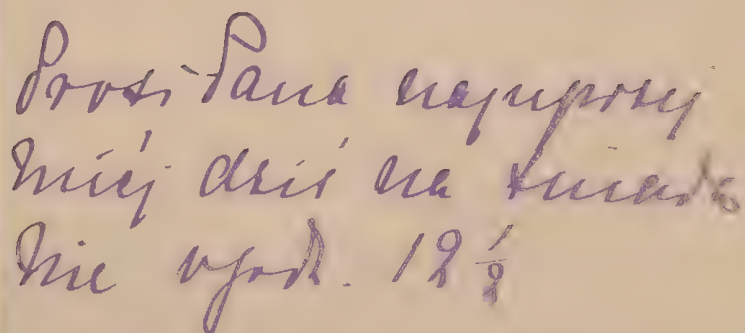 Prosi Pana najuprzej
miéj dziś na śniada
nie o godz. 12 ½